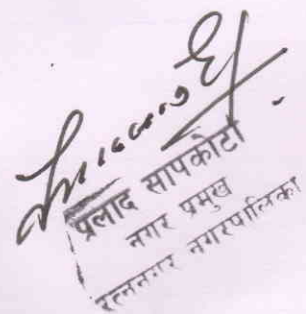 प्रलाद सापकोटा
नगर प्रमुख
रत्ननगर नगरपालिका